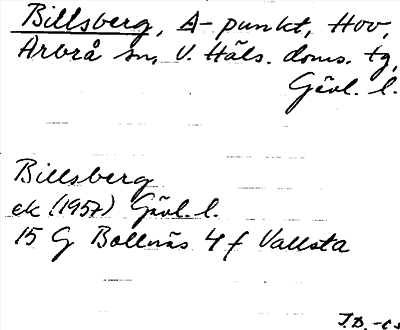 Billsberg, A-punkt, Hov,
Arbrå sn, V. Häls. doms. tg,
Gävl. l.
Billsberg
ek (1957) Gävl. l.
15 G Bollnäs 4 f Vallsta
J.D. -cs